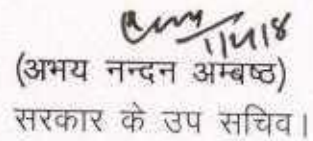 1/11/18
(अभय नन्दन अम्बष्ठ)
सरकार के उप सचिव।